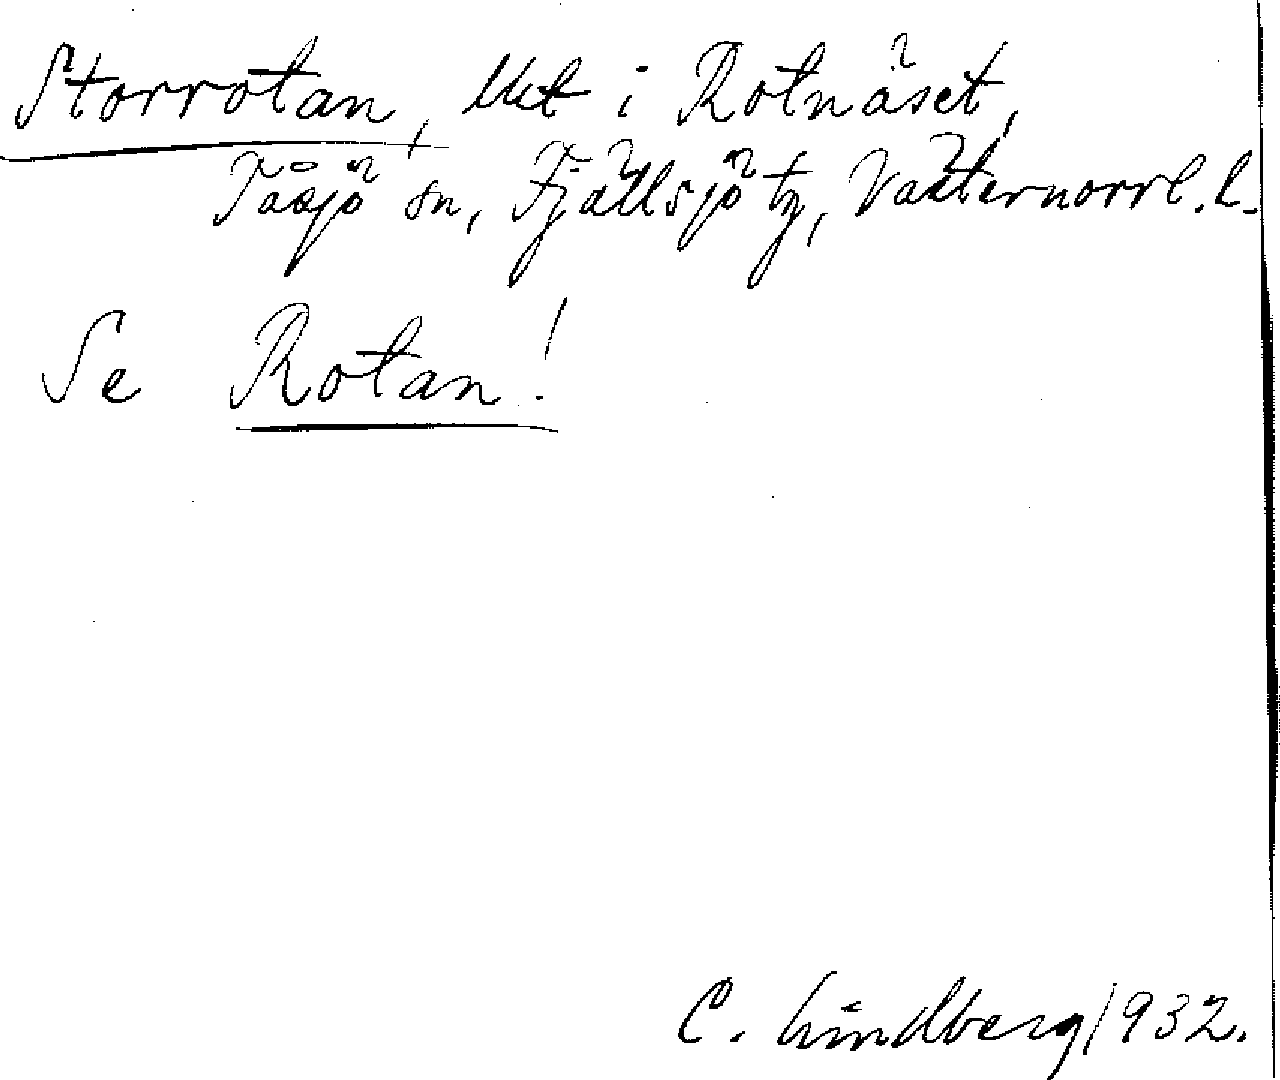 Storrotan, Ukt i Rotnäset,
Tåsjö sn, Fjällsjö tg, Västernorrl. l.
Se Rotan!
C. Lindberg 1932.